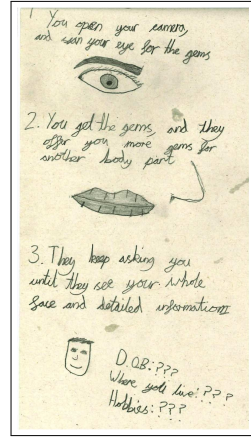 1 You open your camera,
and scan your eye for the gems
2. You get the gems, and they
offer you more gems for
another body part
3. They keep asking you
until they see your whole
face and detailed information
D.OB:???
Where you live:???
Hobbies:???